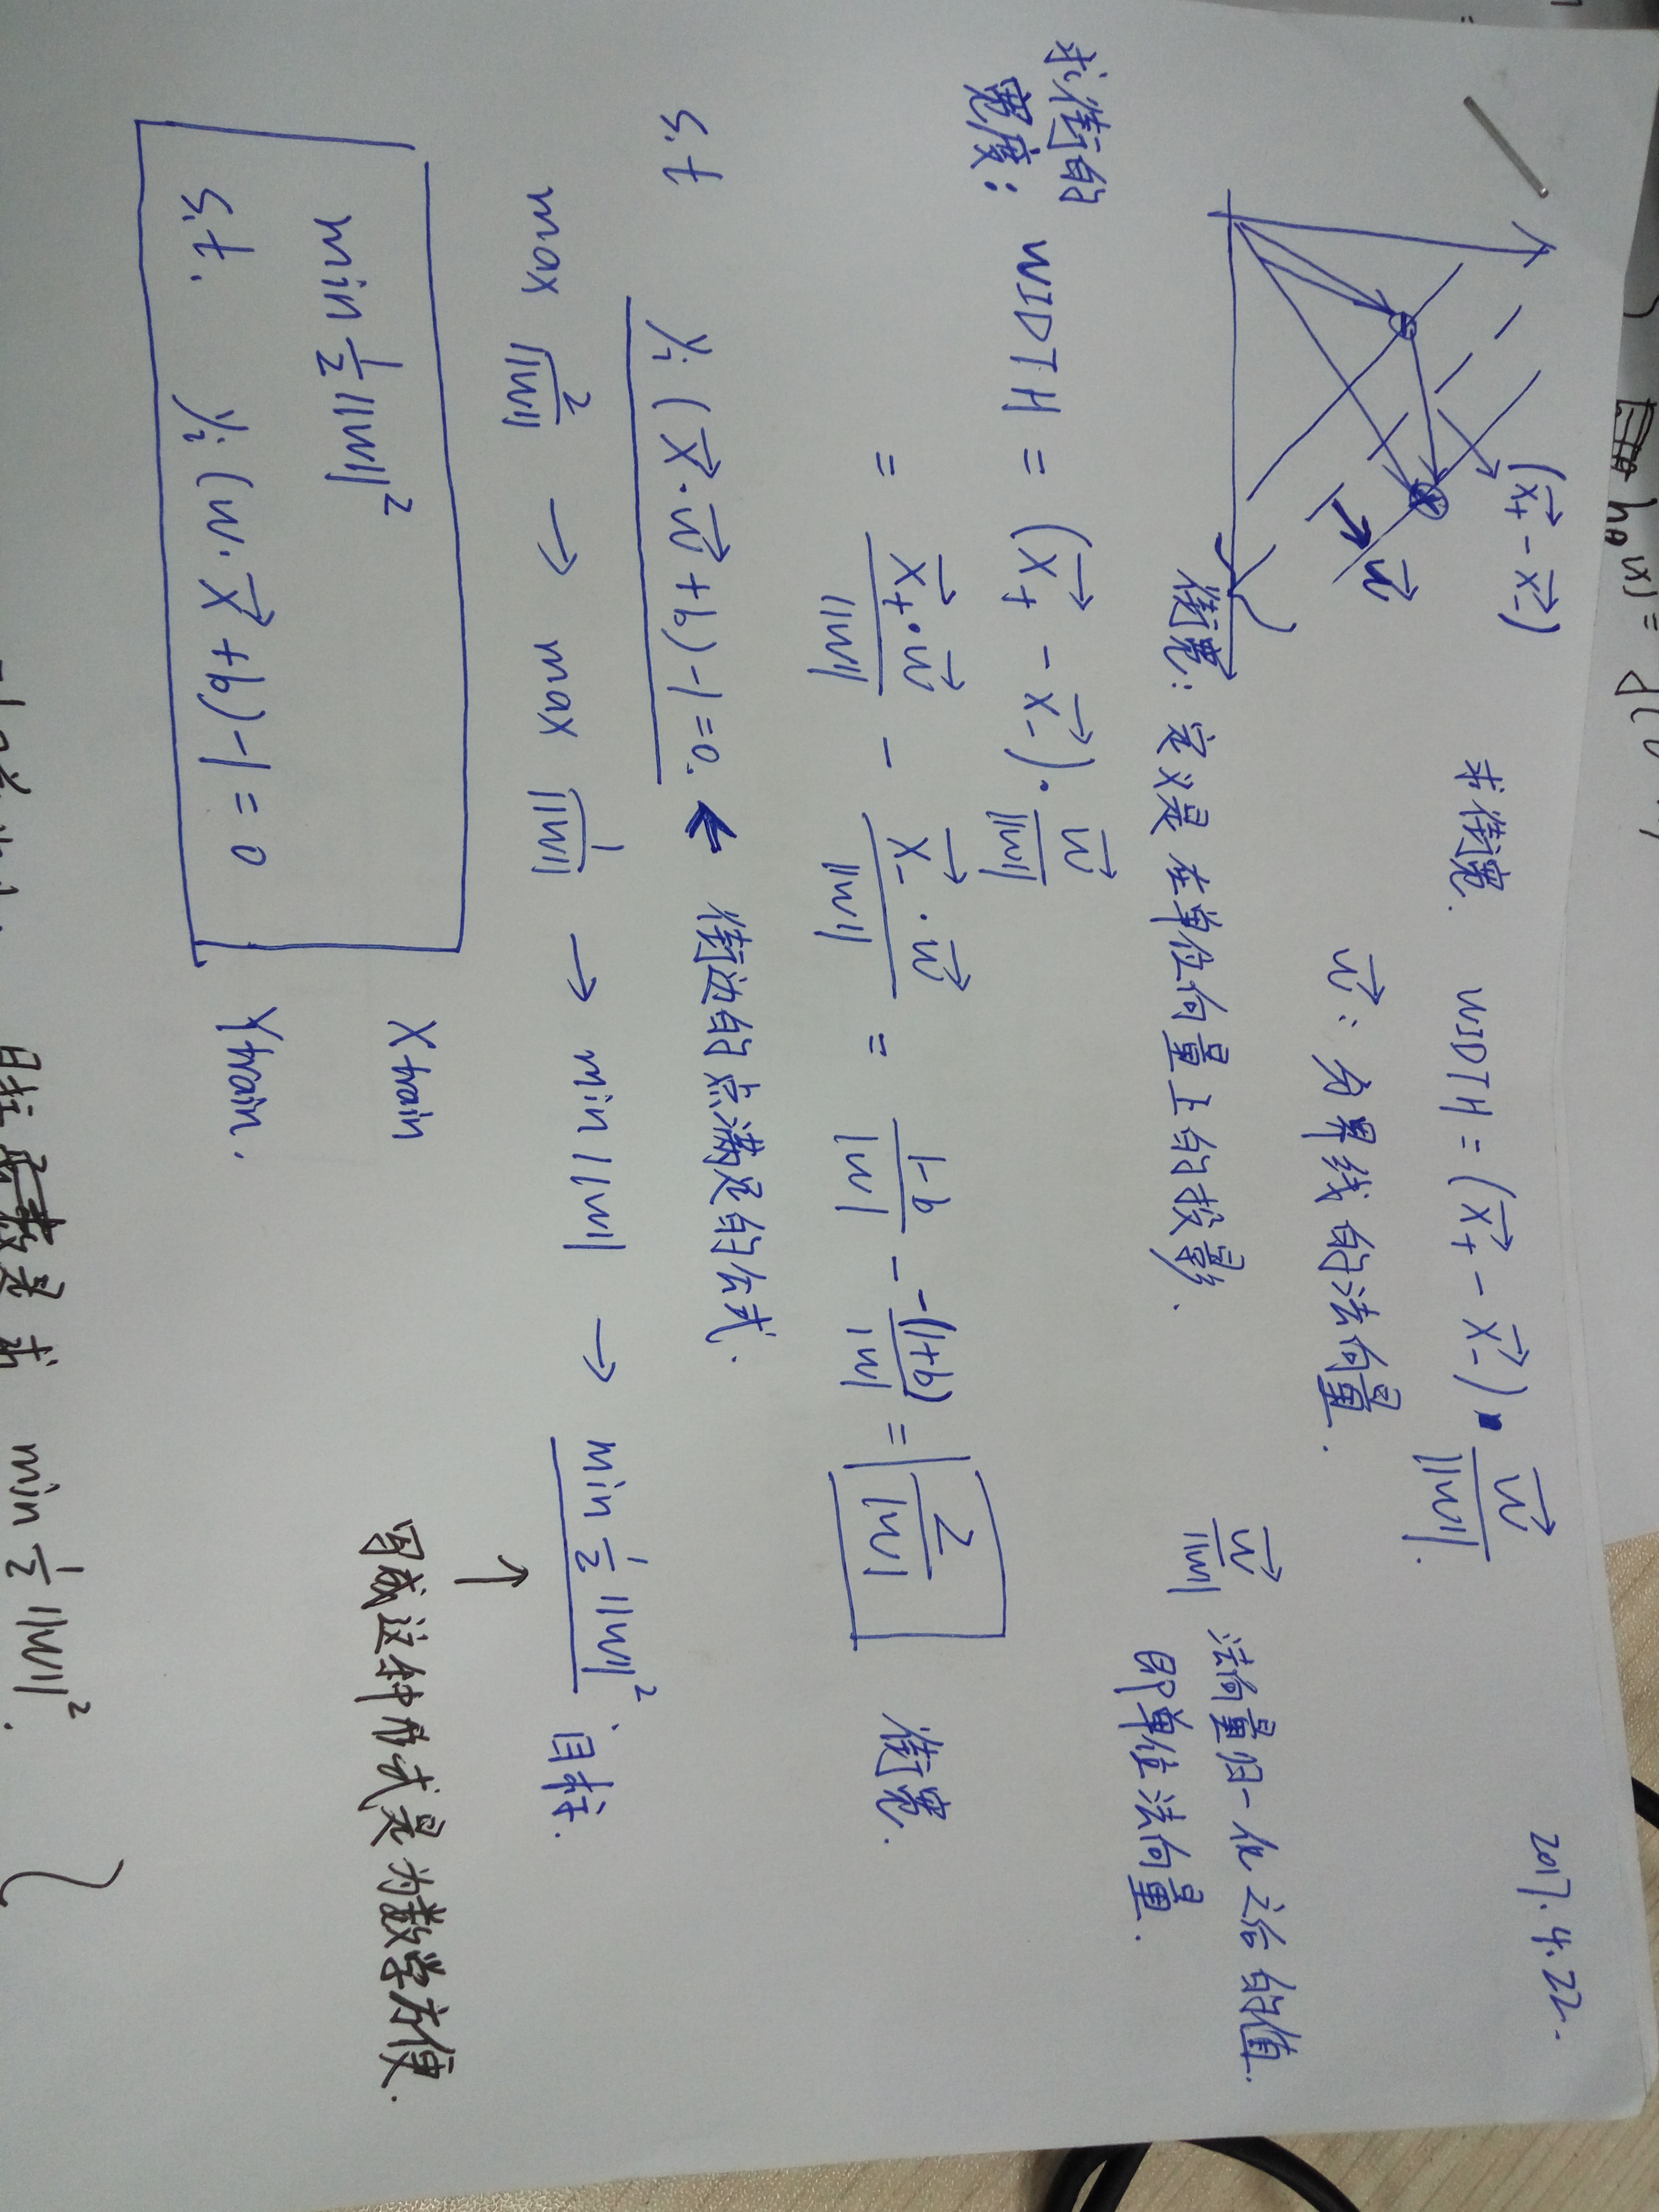 2017.4.22.
(x⃗₊ - x⃗₋)
求街宽. WIDTH = (x⃗₊ - x⃗₋) · w⃗/||w||.
w⃗
w⃗: 分界线的法向量.
w⃗/||w|| 法向量归一化之后的值.
即单位法向量.
街宽: 定义是在单位向量上的投影.
求街的
宽度: WIDTH = (x⃗₊ - x⃗₋) · w⃗/||w||
= x⃗₊·w⃗/||w|| - x⃗₋·w⃗/||w|| = 1-b/|w| - -(1+b)/|w| = 2/|w| 街宽.
s.t yᵢ(x⃗·w⃗+b)-1=0. ← 街边的点满足的公式.
max 2/||w|| → max 1/||w|| → min ||w|| → min ½||w||². 目标.
↑
写成这种形式是为数学方便.
min ½||w||²
s.t. yᵢ(w·x⃗+b)-1=0
Xtrain
Ytrain.
min ½||w||².